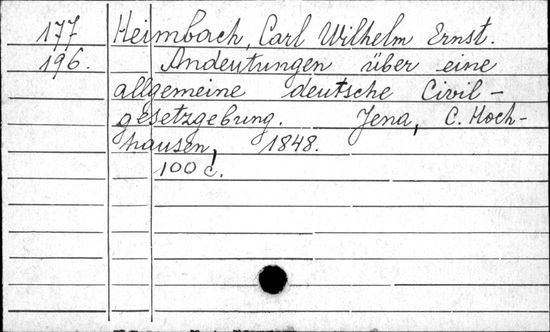 177 Heimbach, Carl Wilhelm Ernst.
196. Andeutungen über eine
allgemeine deutsche Civil-
gesetzgebung. Jena, C. Hoch-
hausen, 1848.
100 c.